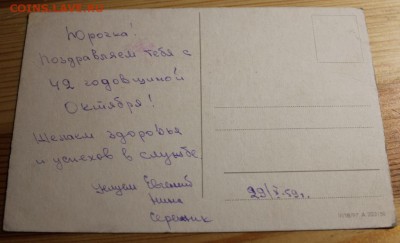 COINS.LAVE.RU
Юрочка!
Поздравляем тебя с
42 годовщиной
Октября!
Желаем здоровья
и успехов в службе
Евгений
Нина
29/X-59г.